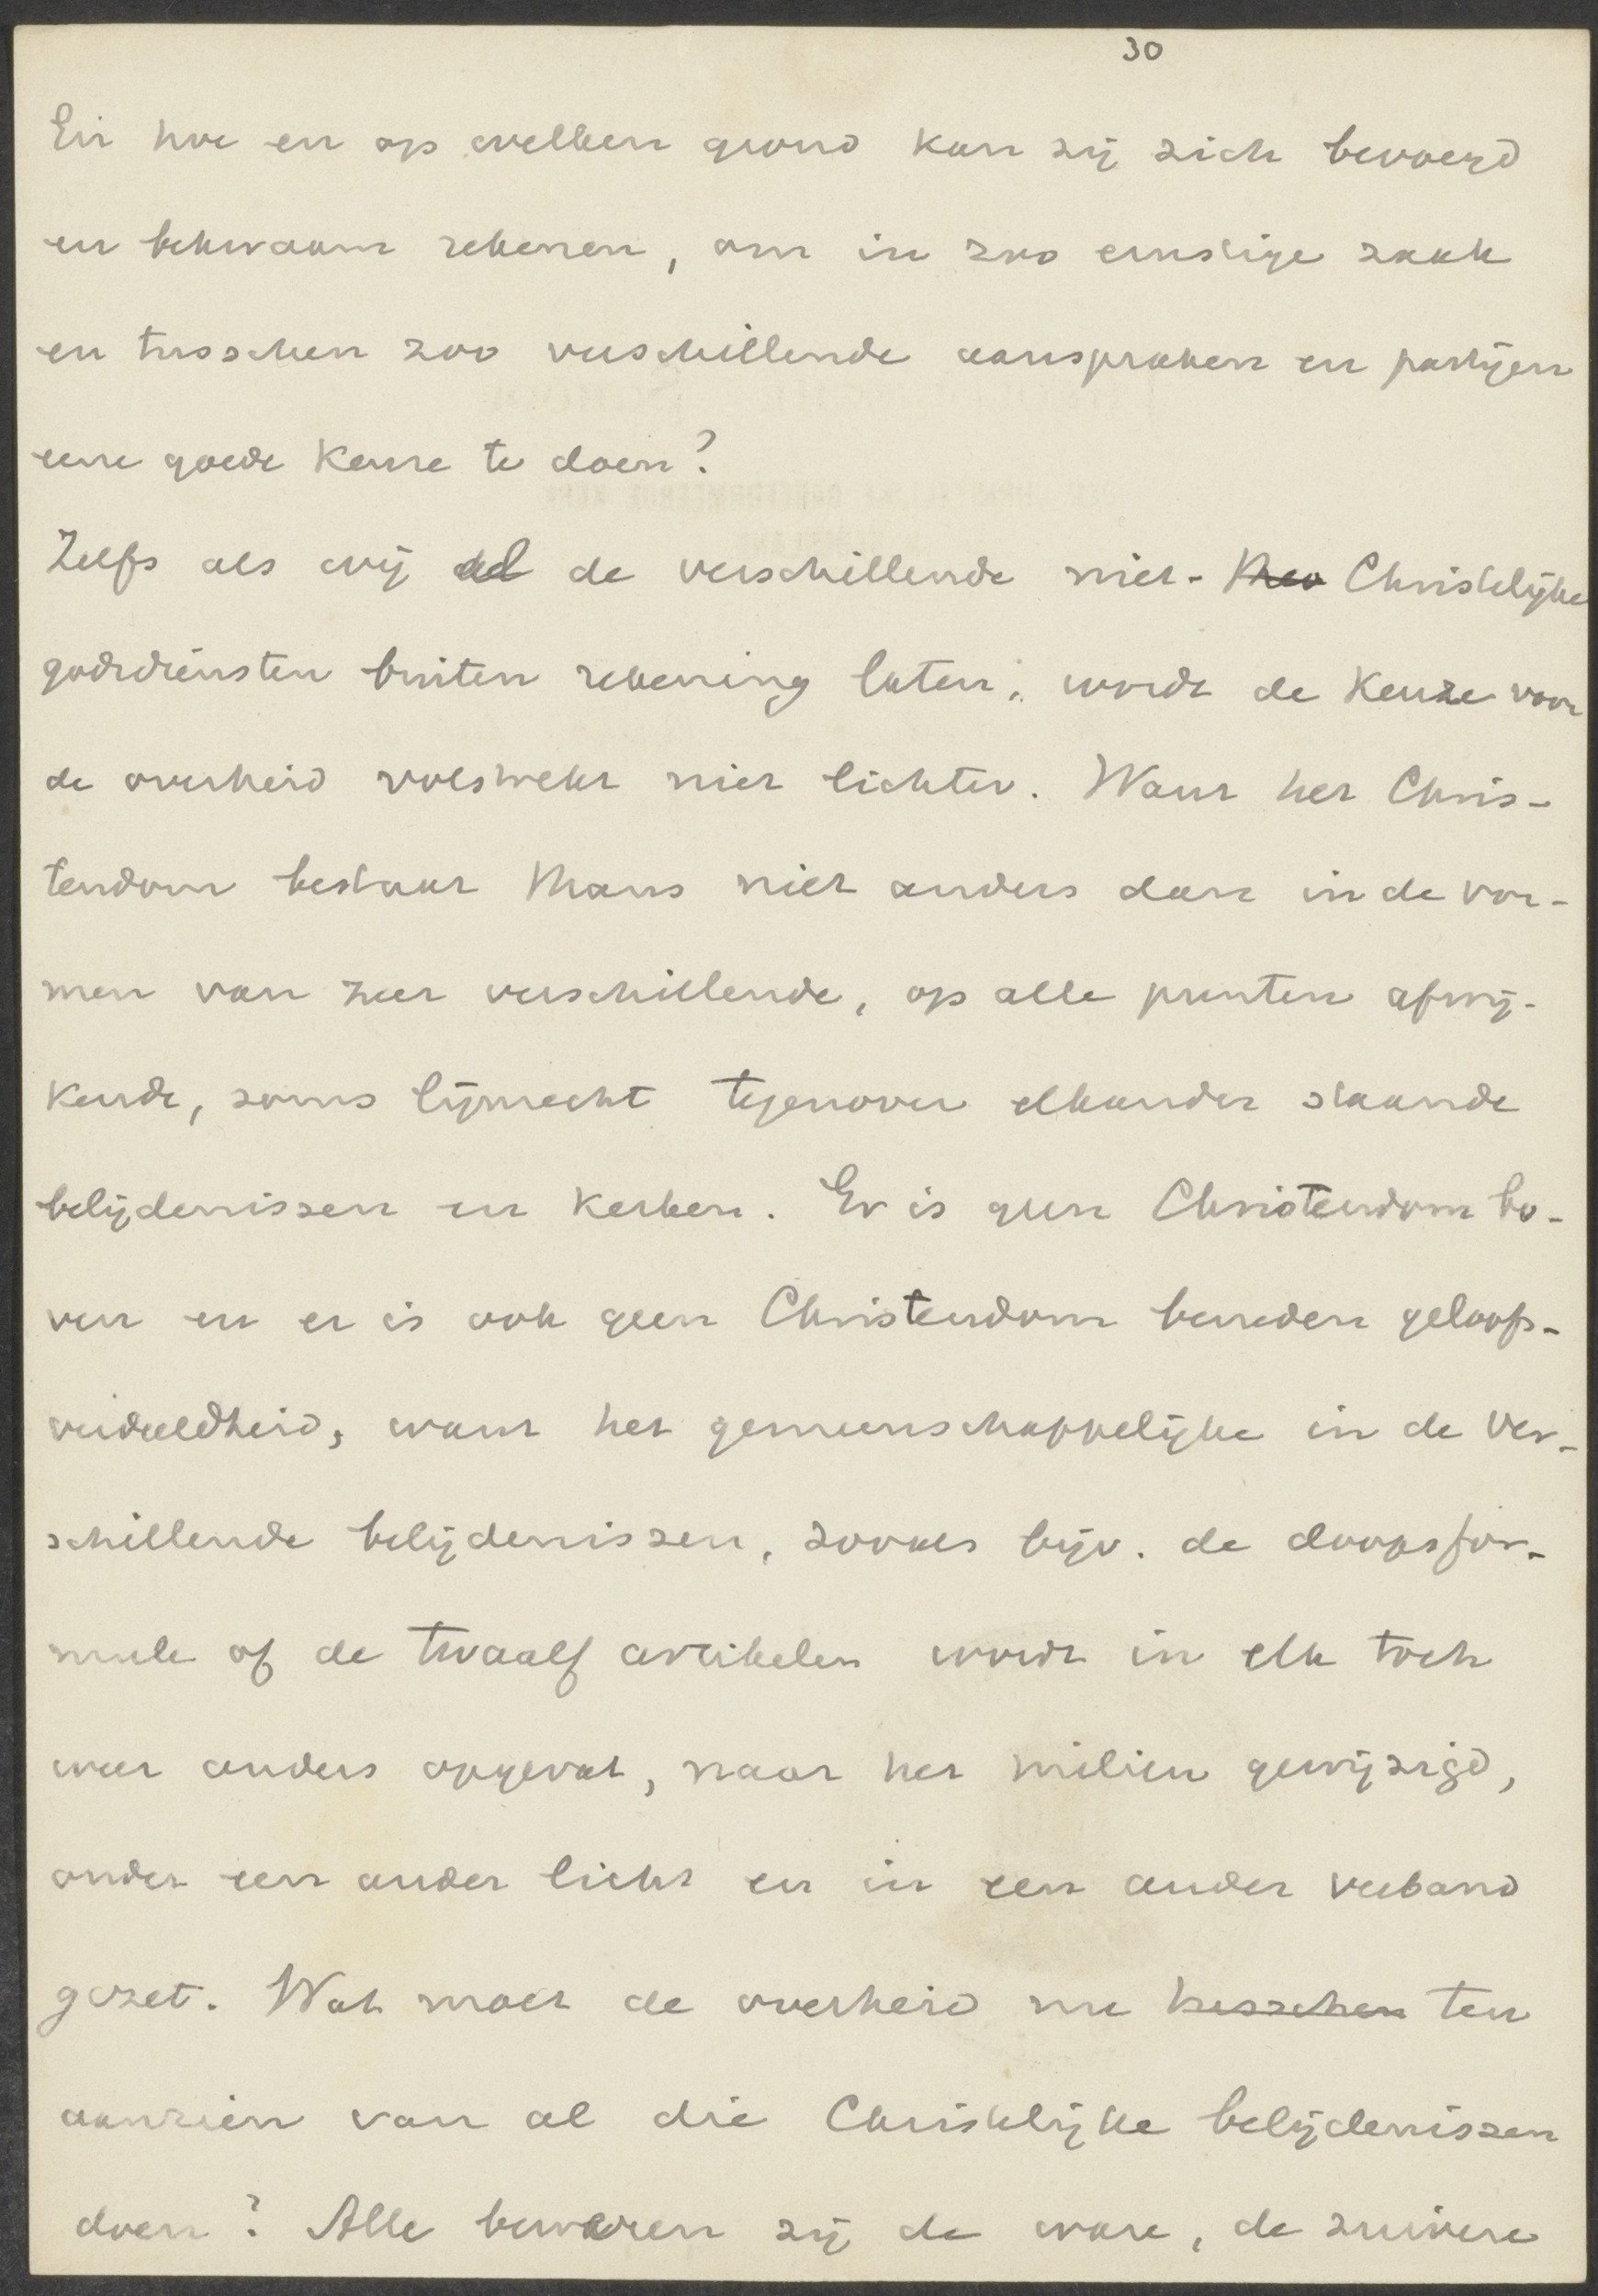 30
En hoe en op welken grond kan zij zich bevoegd
en bekwaam rekenen, om in zoo ernstige zaak
en tusschen zoo verschillende aanspraken en partijen
eene goede keuze te doen?
Zelfs als wij al de verschillende niet- Christelijke
godsdiensten buiten rekening laten, wordt de keuze voor
de overheid volstrekt niet lichter. Want het Chris-
tendom bestaat thans niet anders dan in de vor-
men van zeer verschillende, op alle punten afwij-
kende, soms lijnrecht tegenover elkander staande
belijdenissen en kerken. Er is geen Christendom bo-
ven en er is ook geen Christendom beneden geloofs-
verdeeldheid, want het gemeenschappelijke in de ver-
schillende belijdenissen, zooals bijv. de doopsfor-
mule of de twaalf artikelen wordt in elk toch
weer anders opgevat, naar het milieu gewijzigd,
onder een ander licht en in een ander verband
gezet. Wat moet de overheid nu tusschen ten
aanzien van al die Christelijke belijdenissen
doen? Alle beweren zij de ware, de zuivere